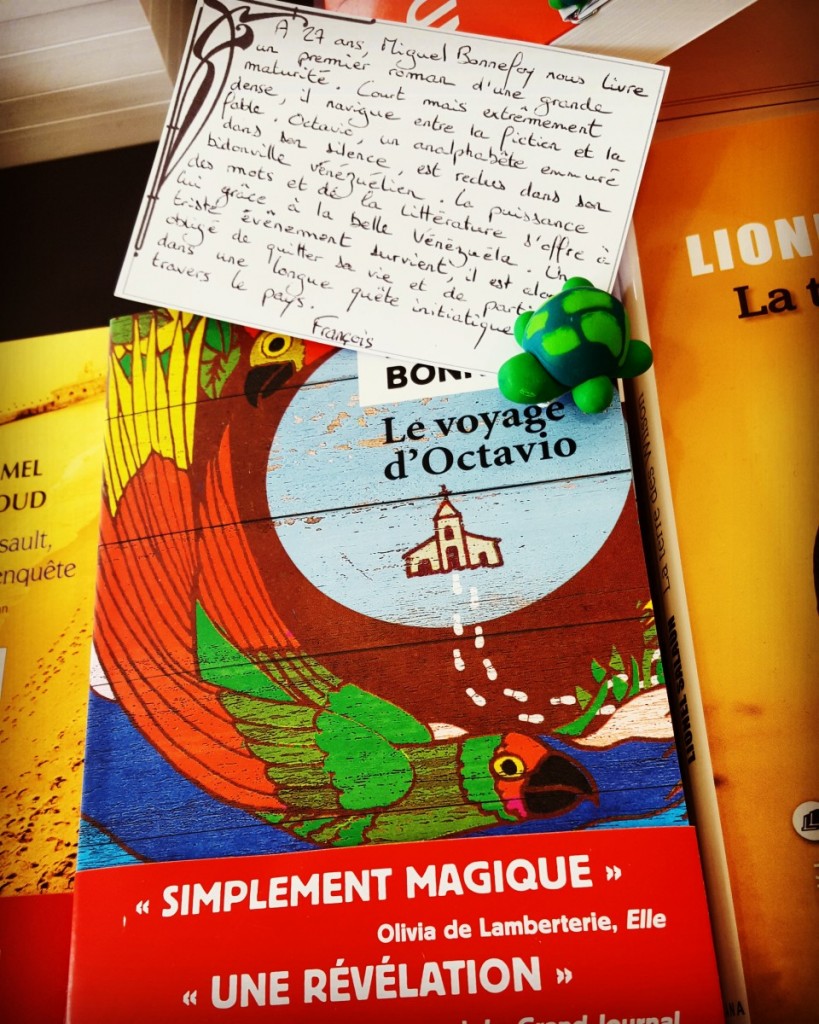 A 27 ans, Miguel Bonnefoy nous livre
un premier roman d'une grande
maturité. Court mais extrêmement
dense, il navigue entre la fiction et la
fable. Octavio, un analphabète emmuré
dans son silence, est reclus dans son
bidonville vénézuélien. La puissance
des mots et de la littérature s'offre à
lui grâce à la belle Vénézuéla. Un
triste évènement survient, il est
obligé de quitter sa vie et de
dans une longue quête initiatique
travers le pays.
François
Le voyage
d'Octavio
« SIMPLEMENT MAGIQUE »
Olivia de Lamberterie, Elle
« UNE RÉVÉLATION »
Grand Journal
MEL
OUD
sault,
enquête
LION
La t
La terre des Wilson
LIONEL SALAÜN